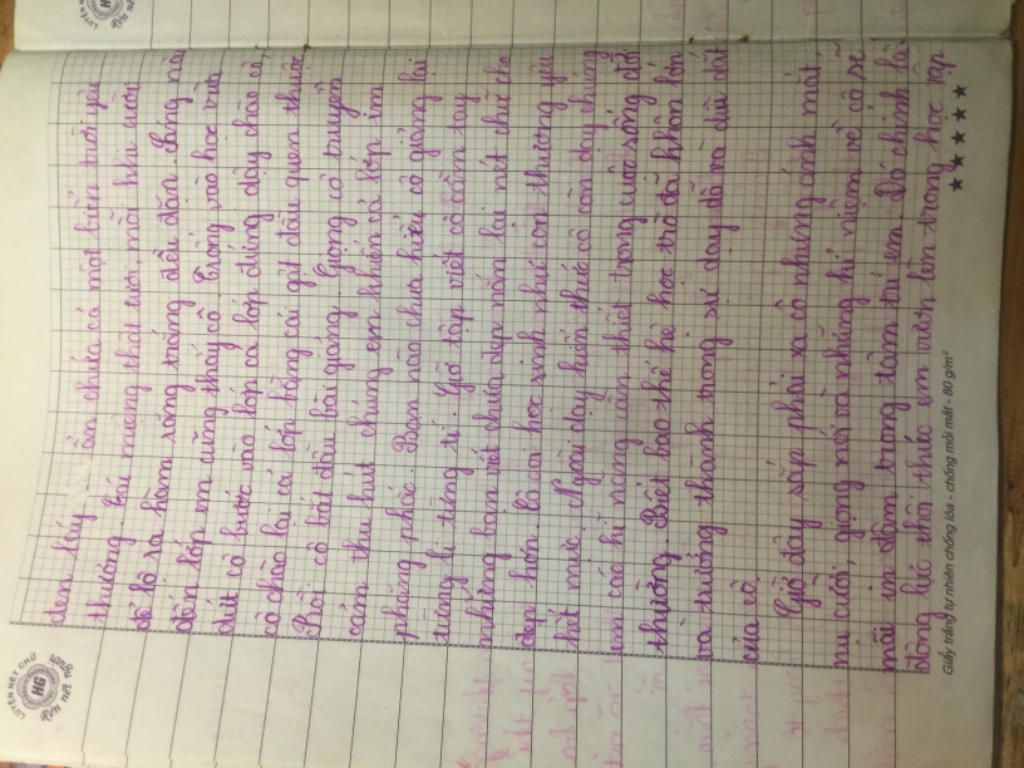 LUYỆN NÉT CHỮ
HG
Rèn nét người
đen láy ẩn chứa cả một biển trời yêu
thương. Cái miệng thật tươi, mỗi khi cười
để lộ ra hàm răng trắng đều đặn. Sáng nào
đến lớp em cũng thấy cô. Trống vào học vừa
dứt cô bước vào lớp cả lớp đứng dậy chào cô,
cô chào lại cả lớp bằng cái gật đầu quen thuộc
Rồi cô bắt đầu bài giảng. Giọng cô truyền
cảm thu hút chúng em khiến cả lớp im
phăng phắc. Bạn nào chưa hiểu cô giảng lại
từng li từng tí. Giờ tập viết cô cầm tay
những bạn viết chưa đẹp nắn lại nét chữ cho
đẹp hơn. Cô coi học sinh như con thương yêu
hết mực. Ngoài dạy kiến thức cô còn dạy chúng
em các kĩ năng cần thiết trong cuộc sống đời
thường. Biết bao thế hệ học trò đã khôn lớn
và trưởng thành trong sự dạy dỗ và dìu dắt
của cô.
Giờ đây sắp phải xa cô những ánh mắt,
nụ cười, giọng nói và những kỉ niệm về cô sẽ
mãi in đậm trong tâm trí em. Đó chính là
động lực thôi thúc em vươn lên trong học tập
Giấy trắng tự nhiên chống lóa - chống mỏi mắt - 80 g/m²
★ ★ ★ ★ ★